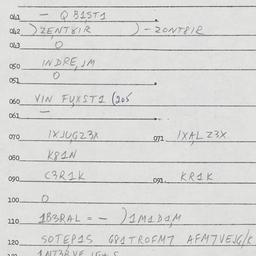 041 — Q B1ST1
042 )ZENT8IR )-ZONT8IR
043 O
050 INDRE,JM
051 O
060 VIN FUXST1 (205
061 —
070 IXJUGZ3X 071 IXALZ3X
080 K81N
090 C3R1K 091 KR1K
100 O
110 1B3RAL = - )1M1D1,M
120 SOTEP1S G81TROFM7 AFM7VEJG/K